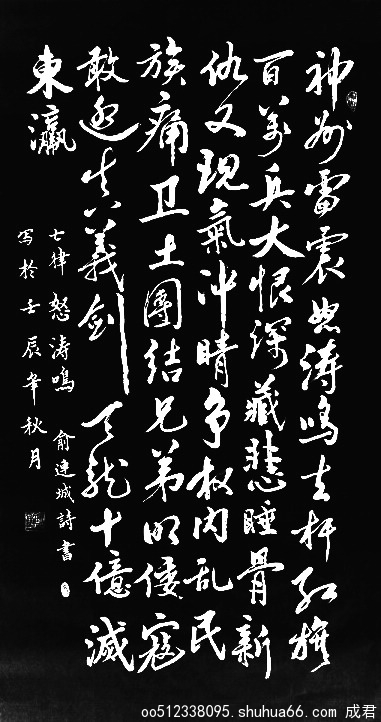 神州雷震怒涛鸣杆红旗
百萬兵大恨深藏悲睡骨新
仇又现氣冲晴争权内乱民
族痛卫土團结兄弟明倭寇
敢義剑天龙十億滅
東瀛
七律 怒涛鸣 俞連城詩書
写於壬辰年秋月
oo512338095.shuhua66.com 成君